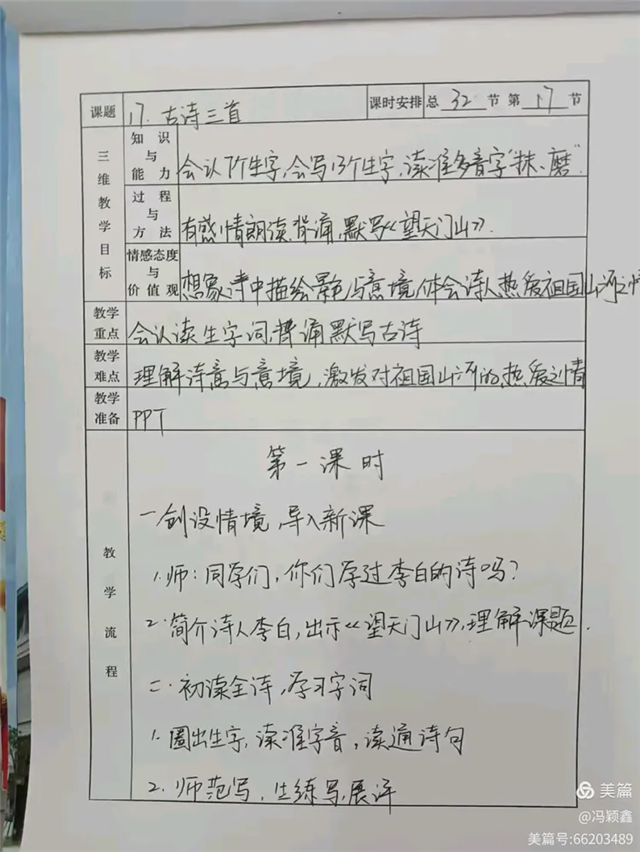 课题 17. 古诗三首 课时安排 总 32 节 第 17 节
三维教学目标
知识与能力 会认7个生字,会写13个生字,读准多音字"抹、磨".
过程与方法 有感情朗读.背诵,默写《望天门山》.
情感态度与价值观 想象诗中描绘景色与意境,体会诗人热爱祖国山河之情
教学重点 会认读生字词,背诵默写古诗
教学难点 理解诗意与意境,激发对祖国山河的热爱之情
教学准备 PPT
教学流程
第一课时
一 创设情境,导入新课
1.师:同学们,你们学过李白的诗吗?
2.简介诗人李白,出示《望天门山》,理解课题.
二.初读全诗,学习字词
1.圈出生字,读准字音,读通诗句
2.师范写,生练写,展评
美篇
@冯颖鑫
美篇号:66203489